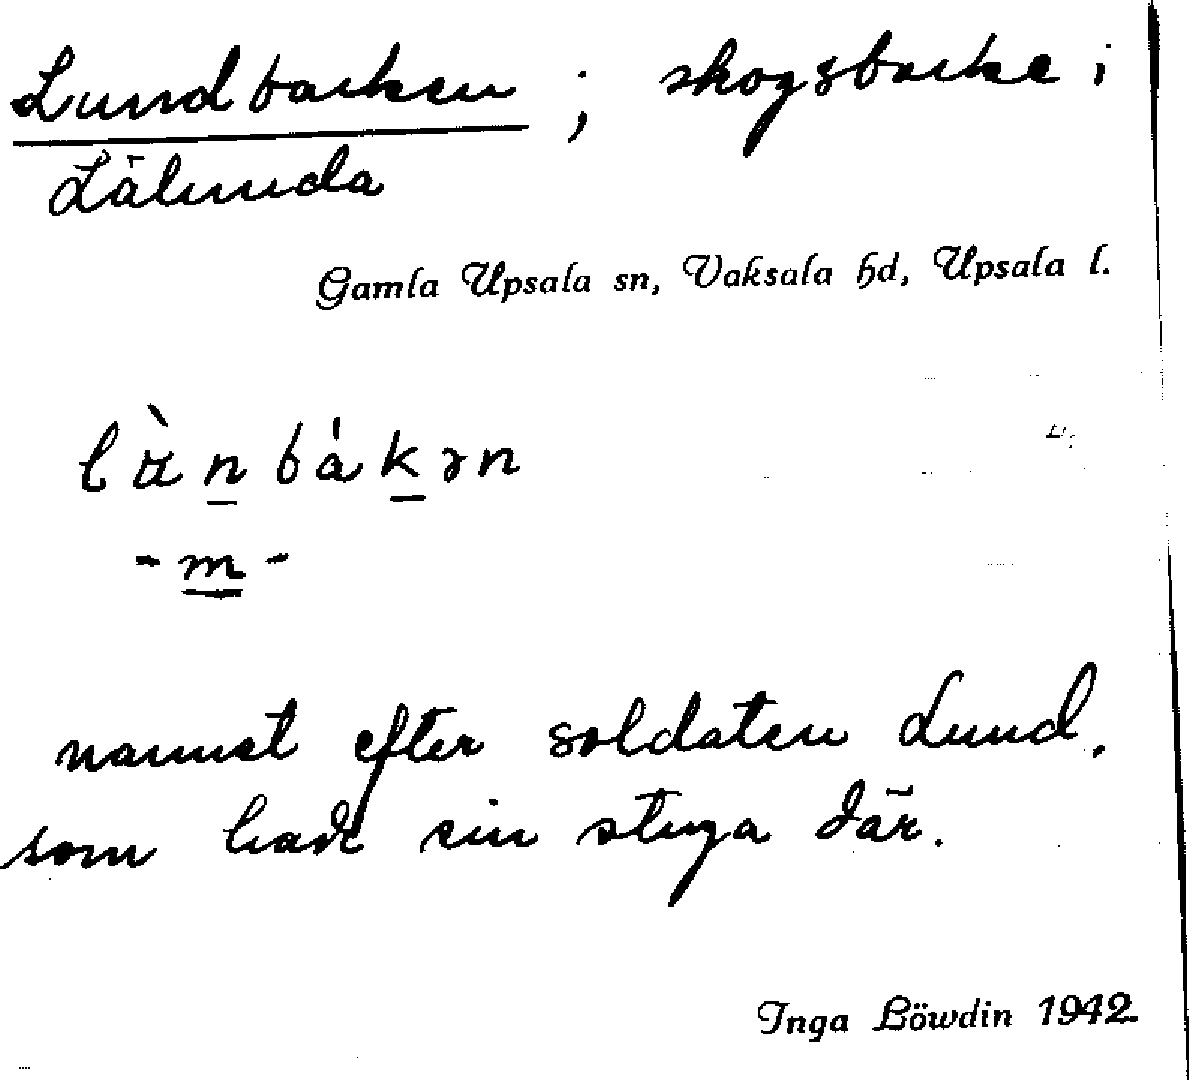 Lundbacken; skogsbacke i
Lälunda
Gamla Upsala sn, Vaksala hd, Upsala l.
lu̇̀n̲bák̲ən
-m̲-
namnet efter soldaten Lund,
som hade sin stuga där.
Inga Löwdin 1942